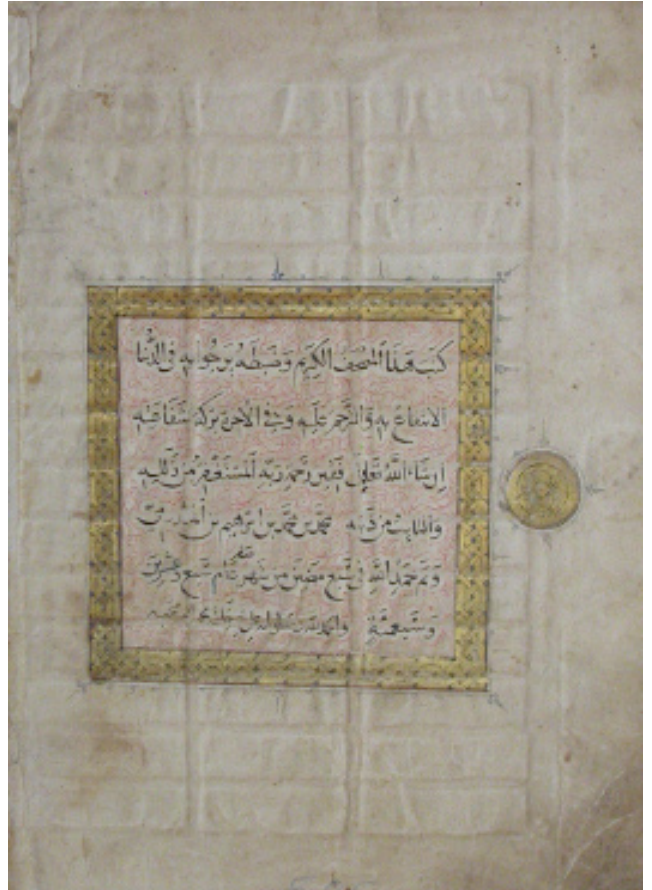 كتب هذا المصحف الكريم وضبطه يرجوا به في الدنيا
الانتفاع به والترحم عليه وفي الاخرة بركة شفاعته
ان شاء الله تعالى فقير رحمة ربه المستغفر من زلله
والتائب من ذنبه محمد بن محمد بن ابرهيم بن
وتم بحمد الله في سبع مضين من شهر صفر عام سبع وعشرين
وسبعمئة والحمد لله